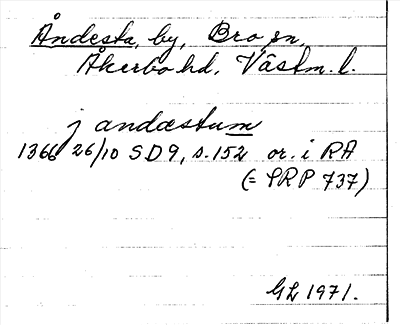 Åndesta, by, Bro sn,
Åkerbo hd, Västm. l.
j andæstum
1366 26/10 SD9, s.152 or. i RA
(= SRP 737)
GL 1971.